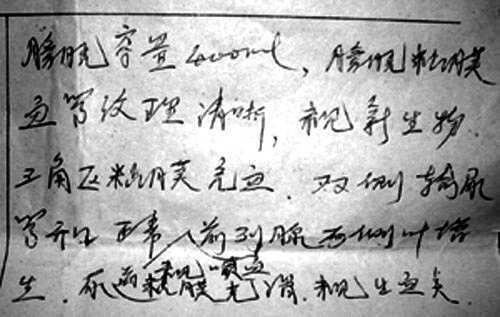 膀胱容量400ml，膀胱粘膜
血管纹理清晰，未见新生物.
三角区粘膜充血.双侧输尿
管开口正常，前列腺两侧叶增
生.尿道粘膜光滑.未见